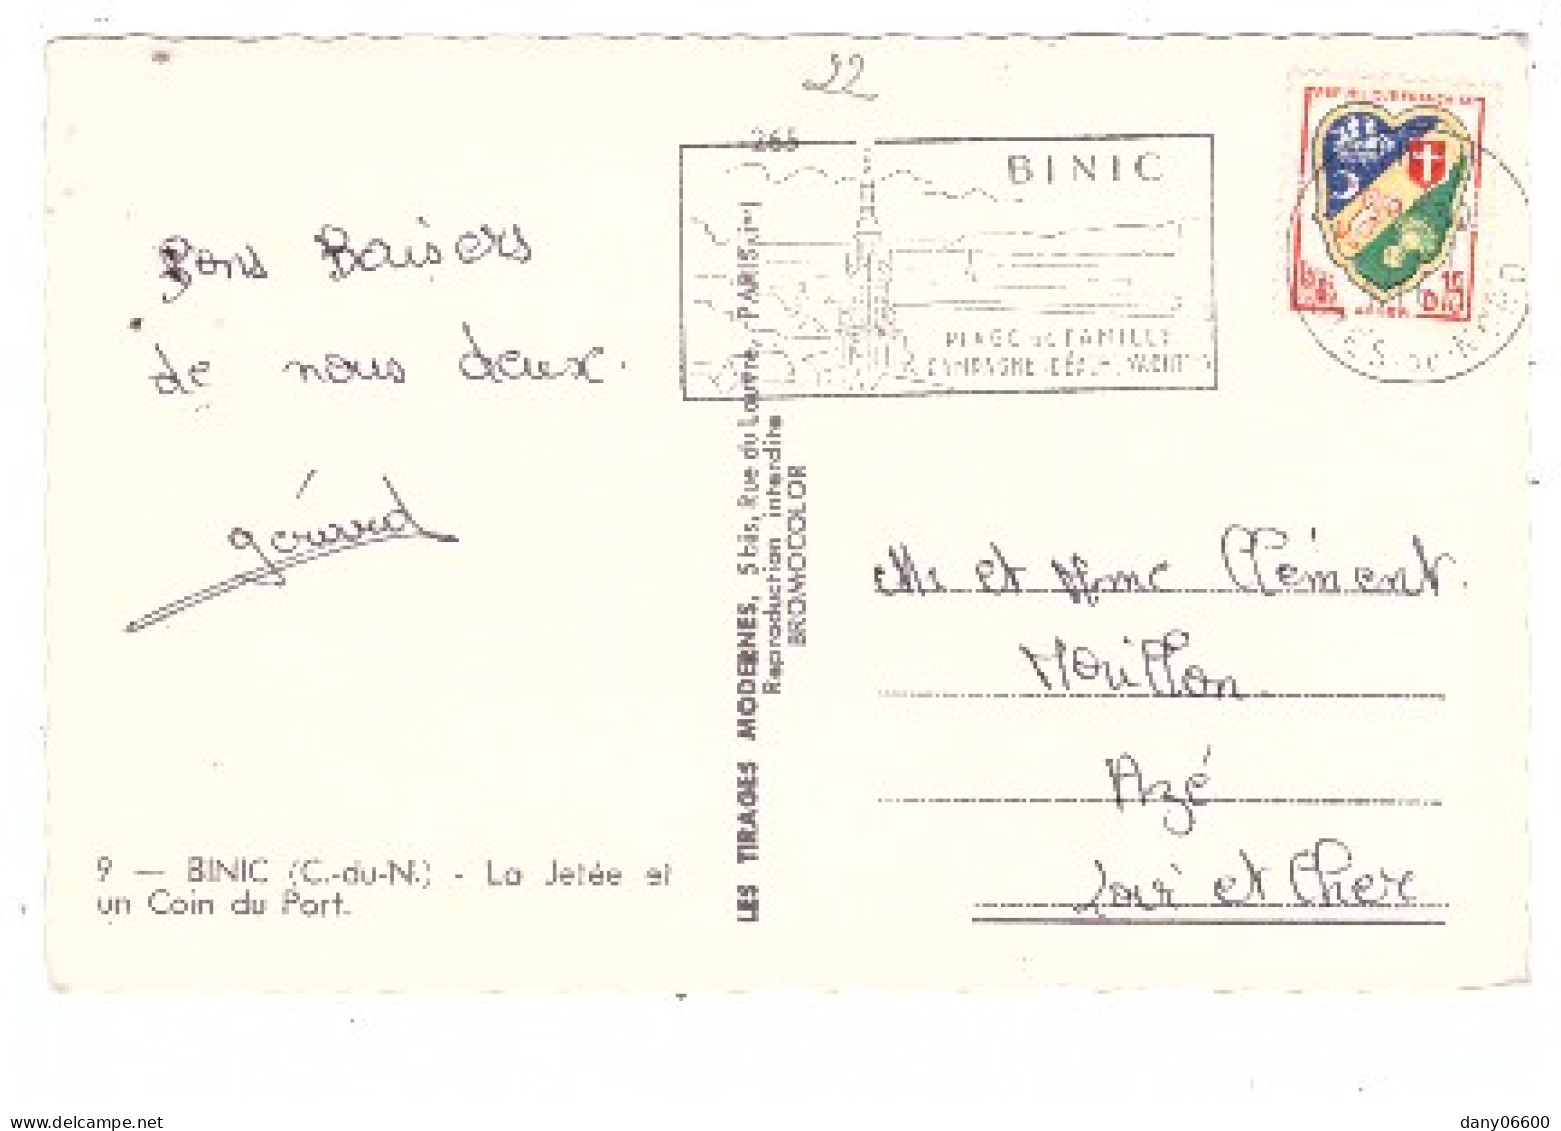 22
265
BINIC
PLAGE DE FAMILLE
CAMPAGNE IDÉALE YACHT
0,15
Bons Baisers
de nous deux.
gérard
LES TIRAGES MODERNES, 5 bis, Rue du Louvre, PARIS (1er)
Reproduction interdite
BROMOCOLOR
Mr et Mme Clément.
Morillon.
Azé
Loir et Cher
9 — BINIC (C.-du-N.) - La Jetée et
un Coin du Port.
delcampe.net
dany06600